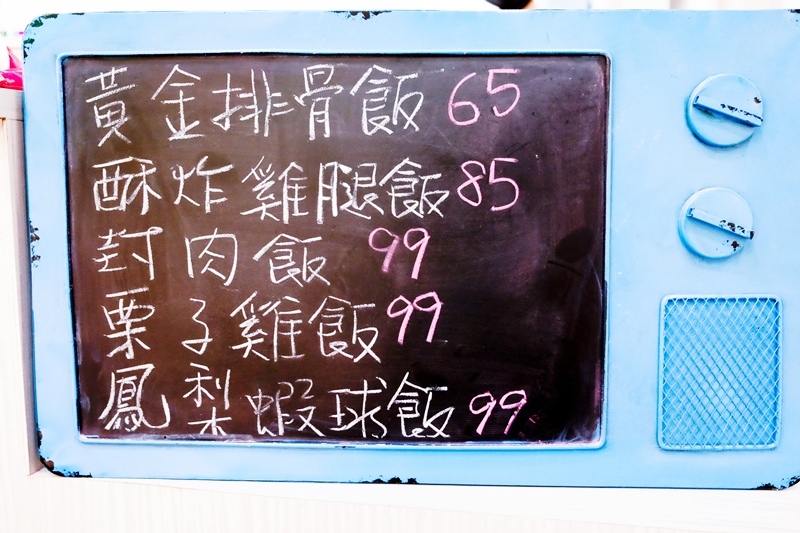 黃金排骨飯 65
酥炸雞腿飯 85
封肉飯 99
栗子雞飯 99
鳳梨蝦球飯 99